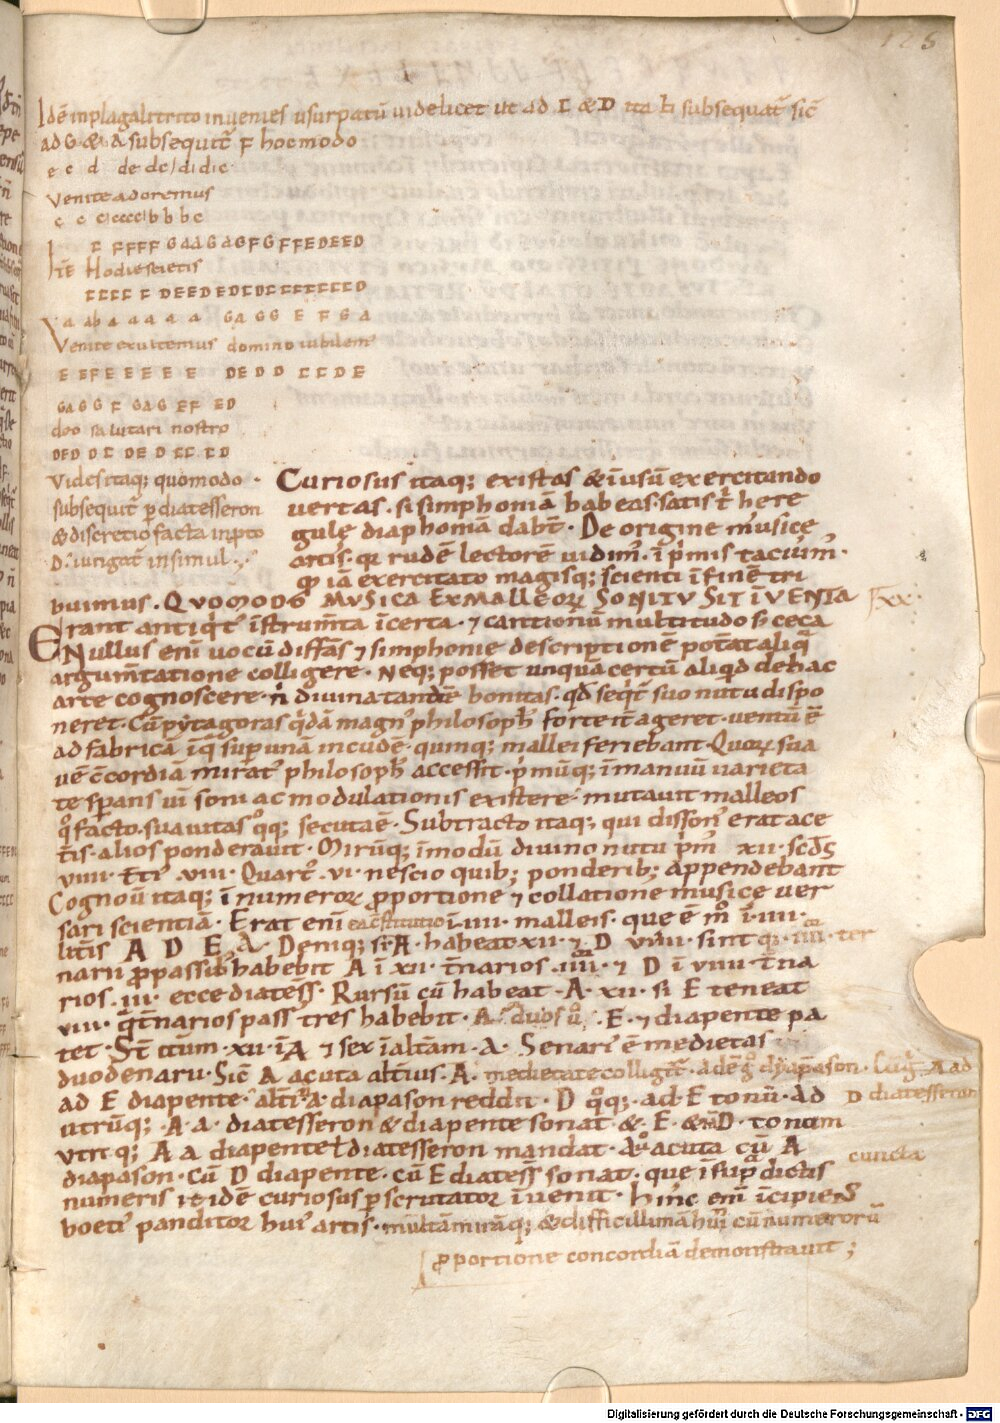 125
Idē in plagali trito invenies usurpatū videlicet ut ad C & D ita b subsequat̄ sic̄
ad G & A subsequit̄ F hoc modo
e c d de dc d dic
Venite adoremus
c c cccc b b b c
C FFFF GAAGAGFGFFEDEED
Itē Hodie scietis
a ab a a a a a GA GG E F G A
Venite exultemus domino iubilem
E EFE E E E E DE D D C C D E
GA G G F GA G EF ED
deo salutari nostro
DED D C DE D CC CD
Vides itaq; quomodo
subsequit̄ p diatesseron
& discretio facta in pto
D. iungat̄ insimul.
Curiosus itaq; existas & ī usū exercitando
vertas. si simphoniā habeas. satis t̄ hę re
gulę diaphoniā dabt̄. De origine musicę
artis. q̄ rudē lectorē vidim̄. ī p̄mis tacuim̄.
q̄ iā exercitato magisq; scienti ī fine tri
buimus. QUOMODO MUSICA EX MALLEOꝜ SONITU SIT IVENTA XX.
Erant antiq̄t̄ īstrum̄ta īcerta. ⁊ cantionū multitudo s; cęca
Nullus eni vocū diffās ⁊ simphonię descriptionē potat aliq̄
argum̄tatione colligere. Neq; posset unquā certū aliq̄d de hac
arte cognoscere. n̄ divina tandē bonitas. qd̄ seq̄t̄ suo nutu dispo
neret. Cū pytagoras q̄dā magn̄ philosoph̄ forte it̄ ageret. ventū ē
ad fabricā ī q̄ sup unā incudē. quinq; mallei feriebant. Quoꝝ sua
vē c̄cordiā mirat̄ philosoph̄ accessit. p̄mūq; ī manuū varieta
te sp̄ans vī soni ac modulationis existere. mutavit malleos
q̄ facto. suavitas q̄q; secuta ē. Subtracto itaq; qui disson̄ erat a ce
t̄is. alios ponderavit. Mirūq; ī modū divino nutu p̄m̄ XII. scd̄s
VIIII. t̄ti VIII. Quart̄. VI. nescio quib; ponderib; appendebant
Cognoū itaq; ī numeroꝝ p̄portione ⁊ collatione musicę ver
sari scientiā. Erat enī ea c̄stitutio ī IIII. malleis. quę ē m̄ ī IIII.
litt̄is A D E A. Deniq; si A. habeat XII. ⁊ D VIIII. sint q; IIII. ter
narii p̄passib; habebit A ī XII. t̄narios IIII. ⁊ D ī VIIII t̄na
rios. III. ecce diatess̄. Rursū cū habeat A. XII. si E teneat
VIII. q̄t̄narios pass̄ tres habebit. A. duos ū. E. ⁊ diapente pa
tet. St̄ itūm. XII. ī A ⁊ sex ī altam. A. Senari ē medietas
duodenarii. Sic̄ A acuta alt̄ius. A. medietate colligit̄. adē g̊ dyapason.
ad E diapente. alt̄i A. diapason reddit. D q̄q;. ad. E tonū. Ad
D diatesseron
utrūq;. A. a. diatesseron & diapente sonat &. E. & D. tonum
utriq; A a diapente ⁊ diatesseron mandat. A acuta cū A
cuncta
diapason. cū D diapente. cū E diatess̄ sonat. quę ī sup̄dictis
numeris itidē curiosus p̄scrutator īvenit. hinc enī īcipiens
boeti panditor hui artis. multam miraq; & difficillimā hui cū numerorū
p̄portione concordiā demonstravit;
Digitalisierung gefördert durch die Deutsche Forschungsgemeinschaft - DFG